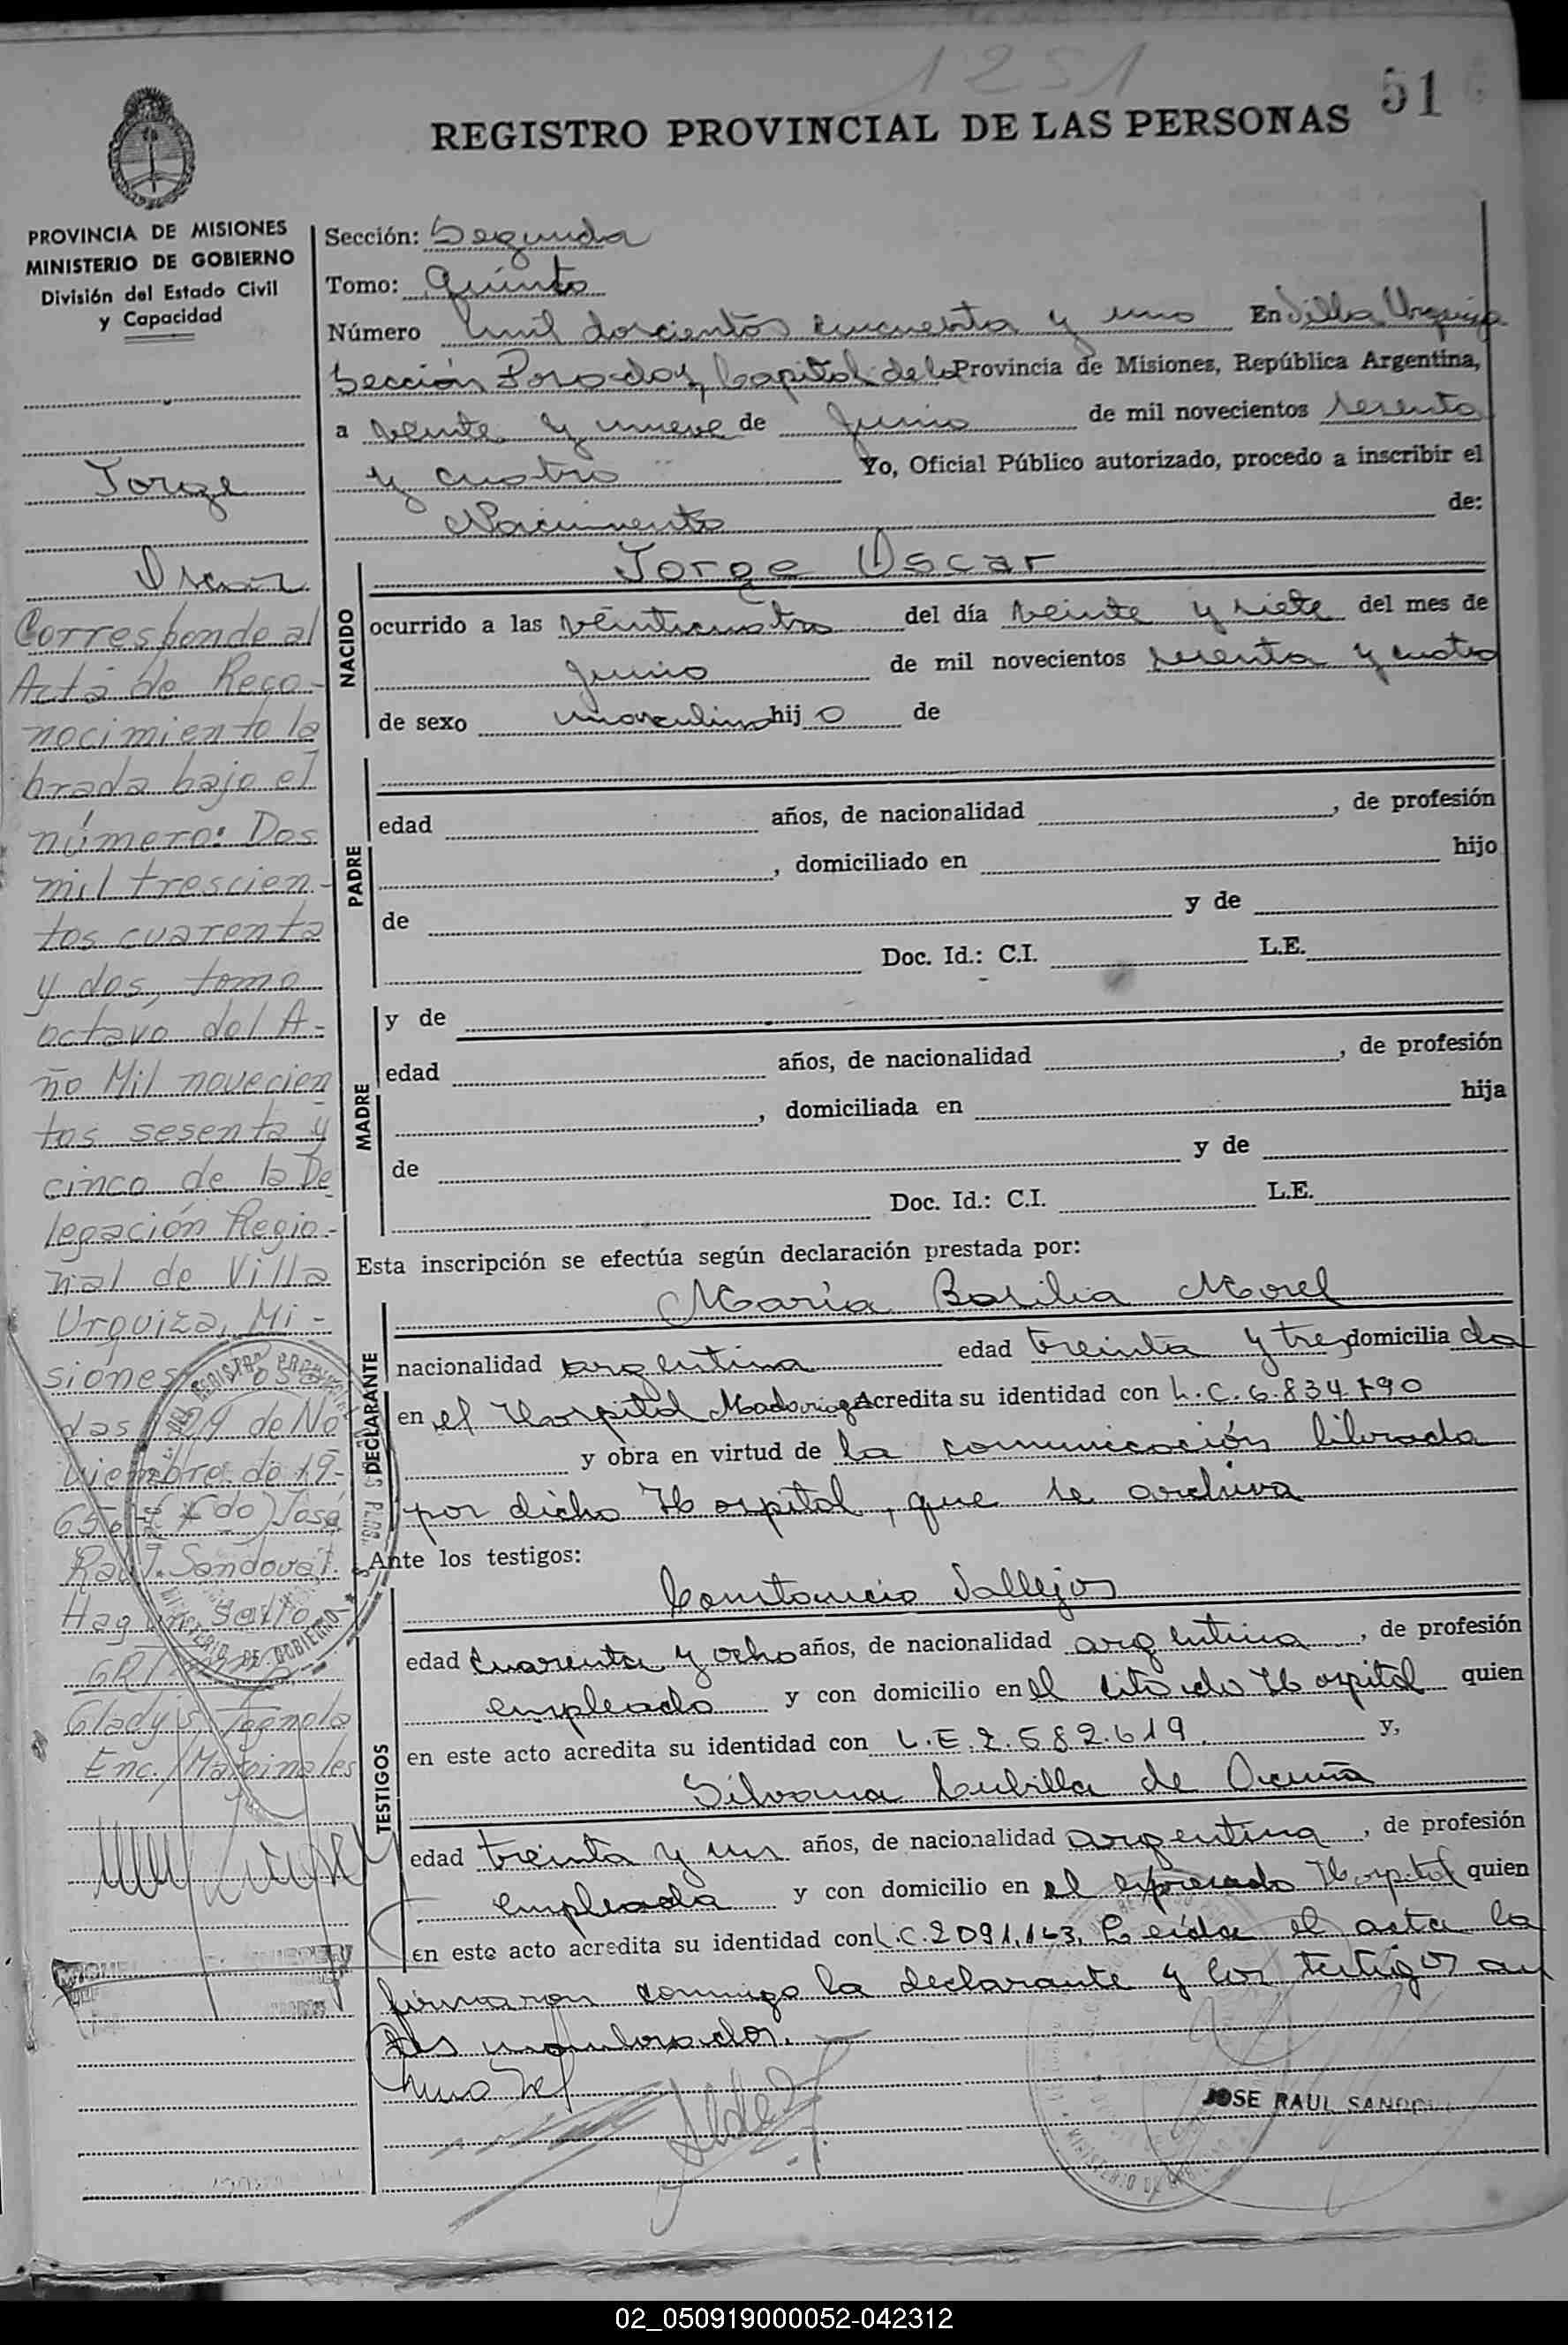 1251
51
REGISTRO PROVINCIAL DE LAS PERSONAS
PROVINCIA DE MISIONES
MINISTERIO DE GOBIERNO
División del Estado Civil
y Capacidad
Jorge
Oscar
Corresponde al
Acta de Reco-
nocimiento la
brada bajo el
número: Dos
mil trescien-
tos cuarenta
y dos, tomo
octavo del A-
ño Mil novecien
tos sesenta y
cinco de la De
legación Regio-
nal de Villa
Urquiza, Mi-
siones
das 29 de No
viembre de 19-
65. (Fdo) José
Raúl Sandoval.
Hay un sello
Gladys Tognola
Enc. Marginales
Sección: Segunda
Tomo: Quinto
Número mil doscientos cincuenta y uno En Villa Urquiza
Sección Posadas, Capital de la Provincia de Misiones, República Argentina,
a veinte y nueve de junio de mil novecientos sesenta
y cuatro Yo, Oficial Público autorizado, procedo a inscribir el
Nacimiento de:
NACIDO
Jorge Oscar
ocurrido a las veinticuatro del día veinte y siete del mes de
junio de mil novecientos sesenta y cuatro
de sexo masculino hij o de
PADRE
edad años, de nacionalidad , de profesión
, domiciliado en hijo
de y de
Doc. Id.: C.I. L.E.
MADRE
y de
edad años, de nacionalidad , de profesión
, domiciliada en hija
de y de
Doc. Id.: C.I. L.E.
Esta inscripción se efectúa según declaración prestada por:
DECLARANTE
María Basilia Morel
nacionalidad argentina edad treinta y tres domicilia da
en el Hospital Madariaga Acredita su identidad con L.C.6.834.790
y obra en virtud de la comunicación librada
por dicho Hospital, que se archiva
Ante los testigos:
TESTIGOS
Constancio Vallejos
edad cuarenta y ocho años, de nacionalidad argentina , de profesión
empleado y con domicilio en el citado Hospital quien
en este acto acredita su identidad con L.E.2.582.619. y,
Silvana Cubilla de Acuña
edad treinta y un años, de nacionalidad argentina , de profesión
empleada y con domicilio en el expresado Hospital quien
en este acto acredita su identidad con L.C.2091.143. Leída el acta la
firmaron conmigo la declarante y los testigos an
tes nombrados.
JOSE RAUL SANDOVAL
02_050919000052-042312